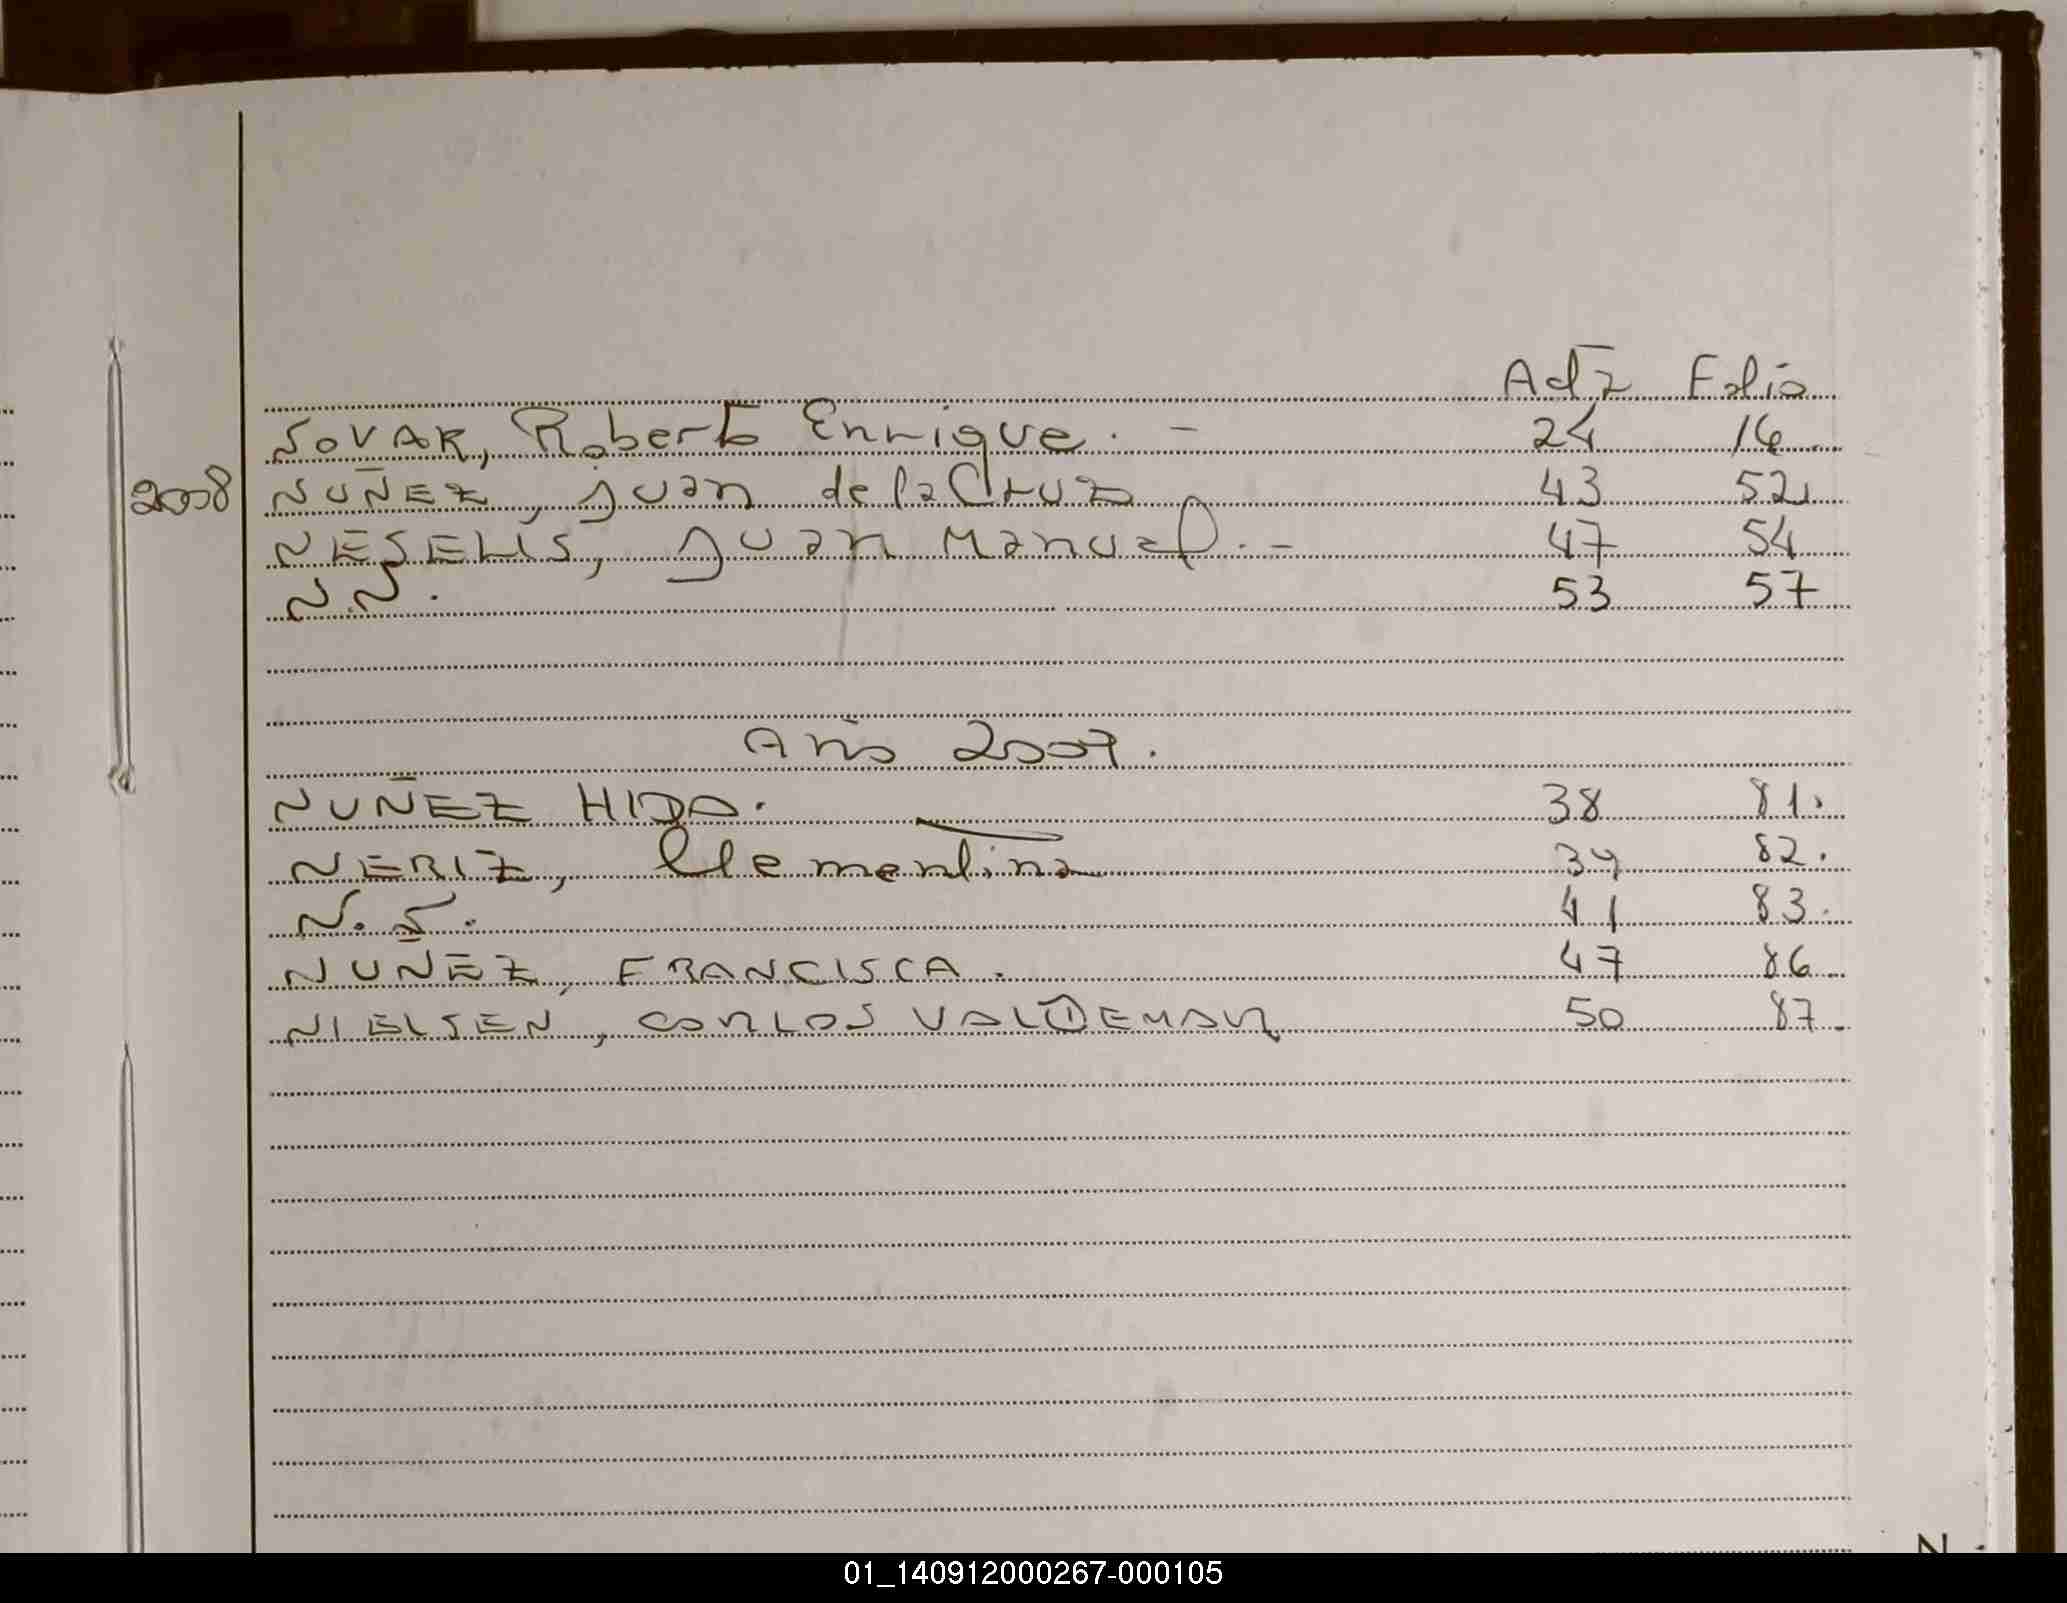 Acta Folio
NOVAR, Roberto Enrique. - 24 16
2008 NUÑEZ, Juan de la Cruz 43 52
NESELIS, Juan Manuel. - 47 54
N.N. 53 57
Año 2009.
NUÑEZ HIDA. 38 81.
NERIZ, Clementina 39 82.
N. S. 41 83.
NUÑEZ, FRANCISCA. 47 86
NIELSEN, CARLOS VALDEMAR 50 87.
N
01_140912000267-000105